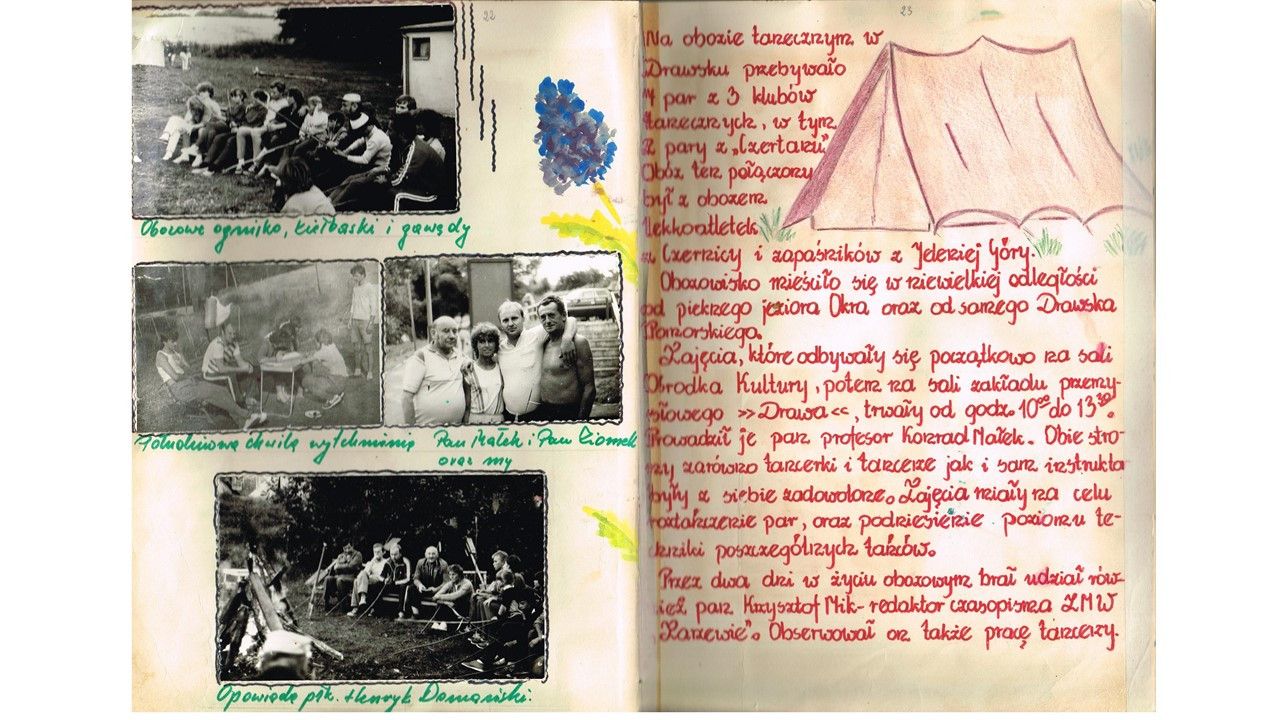 22
Obozowe ognisko, kiełbaski i gawędy
Południowa chwila wytchnienia
Pan Małek i Pan Ziomek
oraz my
Opowiada płk. Henryk Domański.
23
Na obozie tanecznym w
Drawsku przebywało
par z 3 klubów
tanecznych, w tym
2 pary z „Czertaku”.
Obóz ten połączony
był z obozem
lekkoatletek
z Czernicy i zapaśników z Jeleniej Góry.
Obozowisko mieściło się w niewielkiej odległości
od pięknego jeziora Okra oraz od samego Drawska
Pomorskiego.
Zajęcia, które odbywały się początkowo na sali
Ośrodka Kultury, potem na sali zakładu przemy-
słowego »Drawa«, trwały od godz. 10⁰⁰ do 13³⁰.
Prowadził je pan profesor Konrad Małek. Obie stro-
ny zarówno tancerki i tancerze jak i sam instrukto
były z siebie zadowolone. Zajęcia miały na celu
roztańczenie par, oraz podniesienie poziomu te-
chniki poszczególnych tańców.
Przez dwa dni w życiu obozowym brał udział rów-
nież pan Krzysztof Mik - redaktor czasopisma ZMW
„Zarzewie”. Obserwował on także pracę tancerzy.